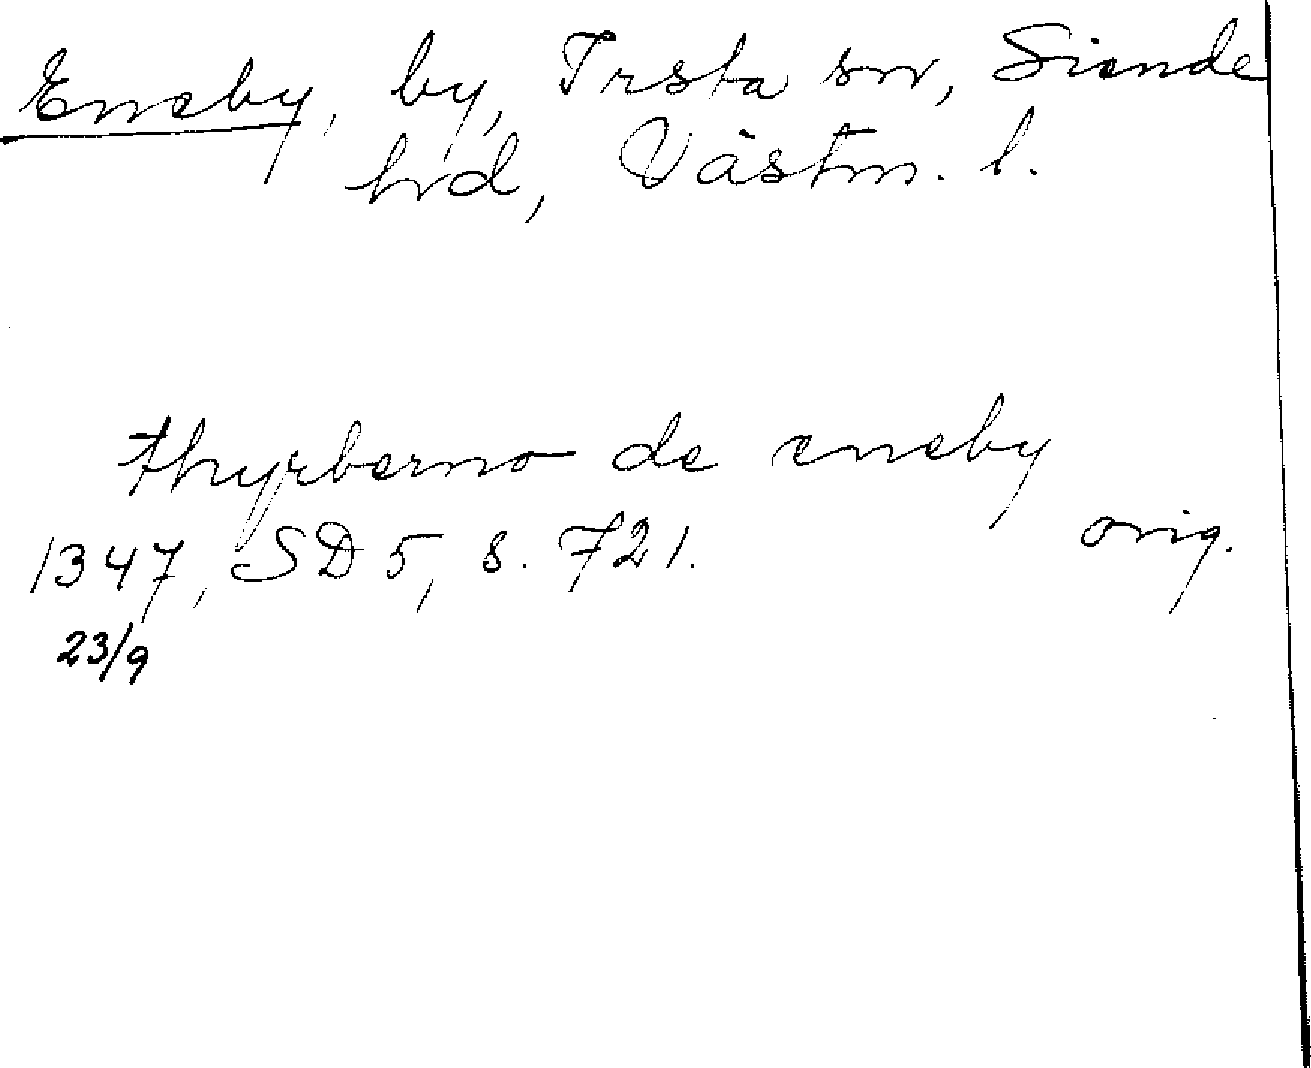 Eneby, by, Irsta sn, Siende
hrd, Västm. l.
thyrberno de eneby
orig.
1347, SD 5, s. 721.
23/9